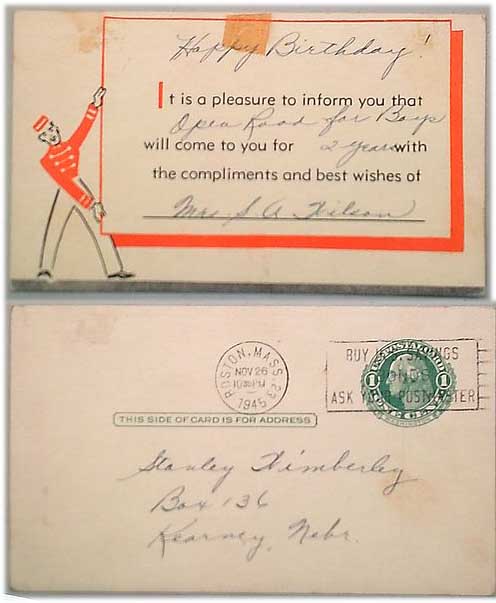 Happy Birthday!
It is a pleasure to inform you that
Open Road for Boys
will come to you for 2 years with
the compliments and best wishes of
Mrs. S. A. Wilson
BOSTON, MASS. 23
NOV 26
1945
BUY SAVINGS
BONDS
ASK YOUR POSTMASTER
U.S. POSTAGE
1 1
ONE CENT
WASHINGTON
THIS SIDE OF CARD IS FOR ADDRESS
Stanley Wimberley
Box 136
Kearney, Nebr.